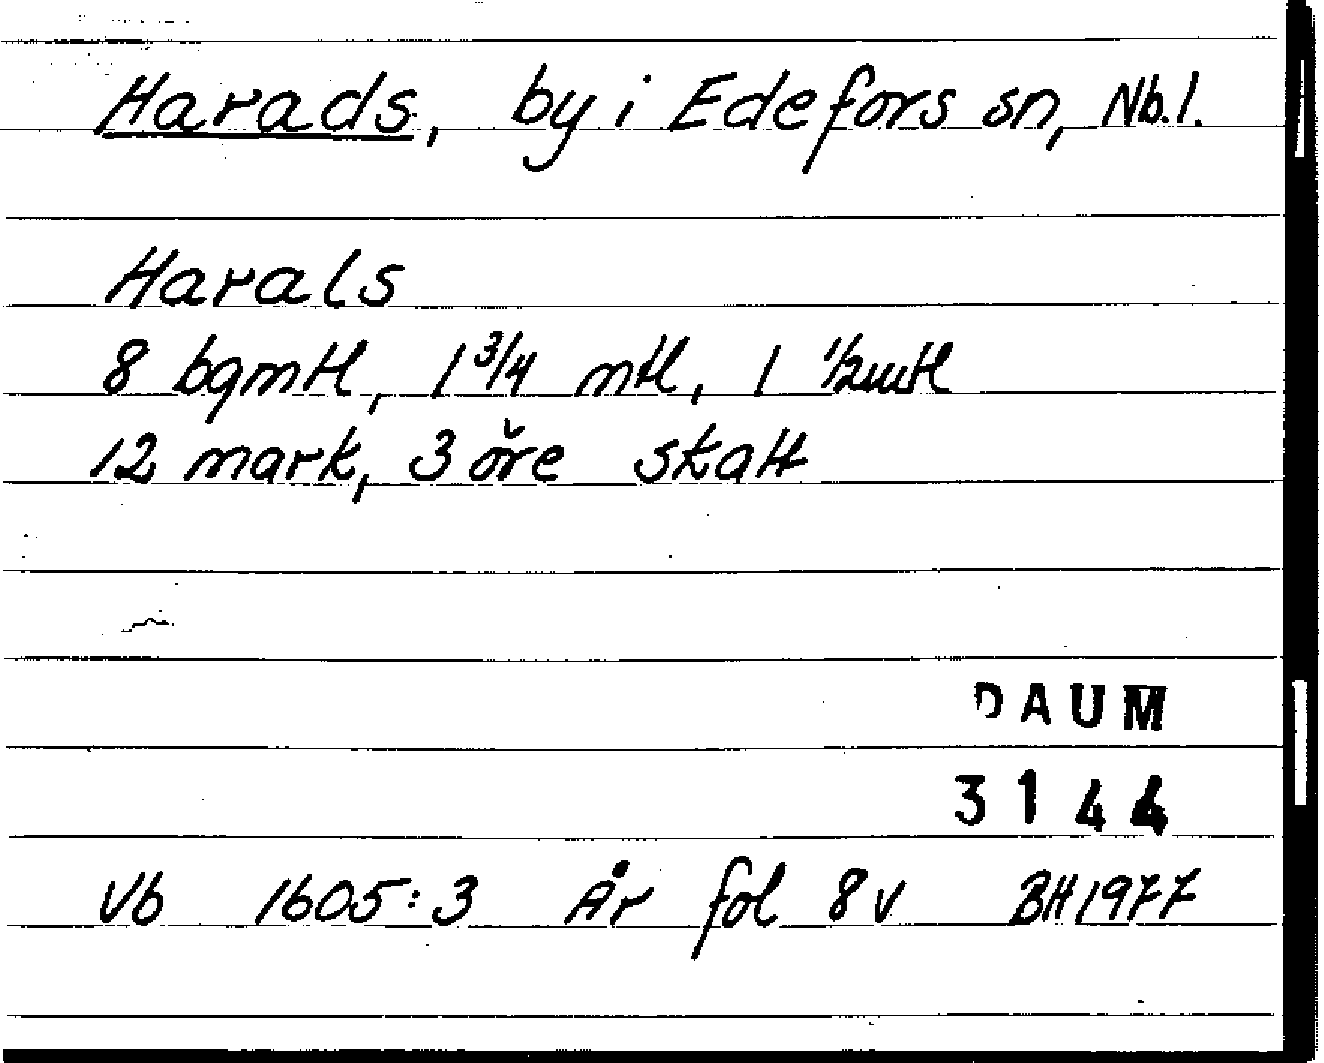 Harads, by i Edefors sn, Nb.l.
Harals
8 bgmtl, 1 3/4 mtl, 1 1/2mtl
12 mark, 3 öre skatt
DAUM
3144
Vb 1605:3 År fol 8v BH1977